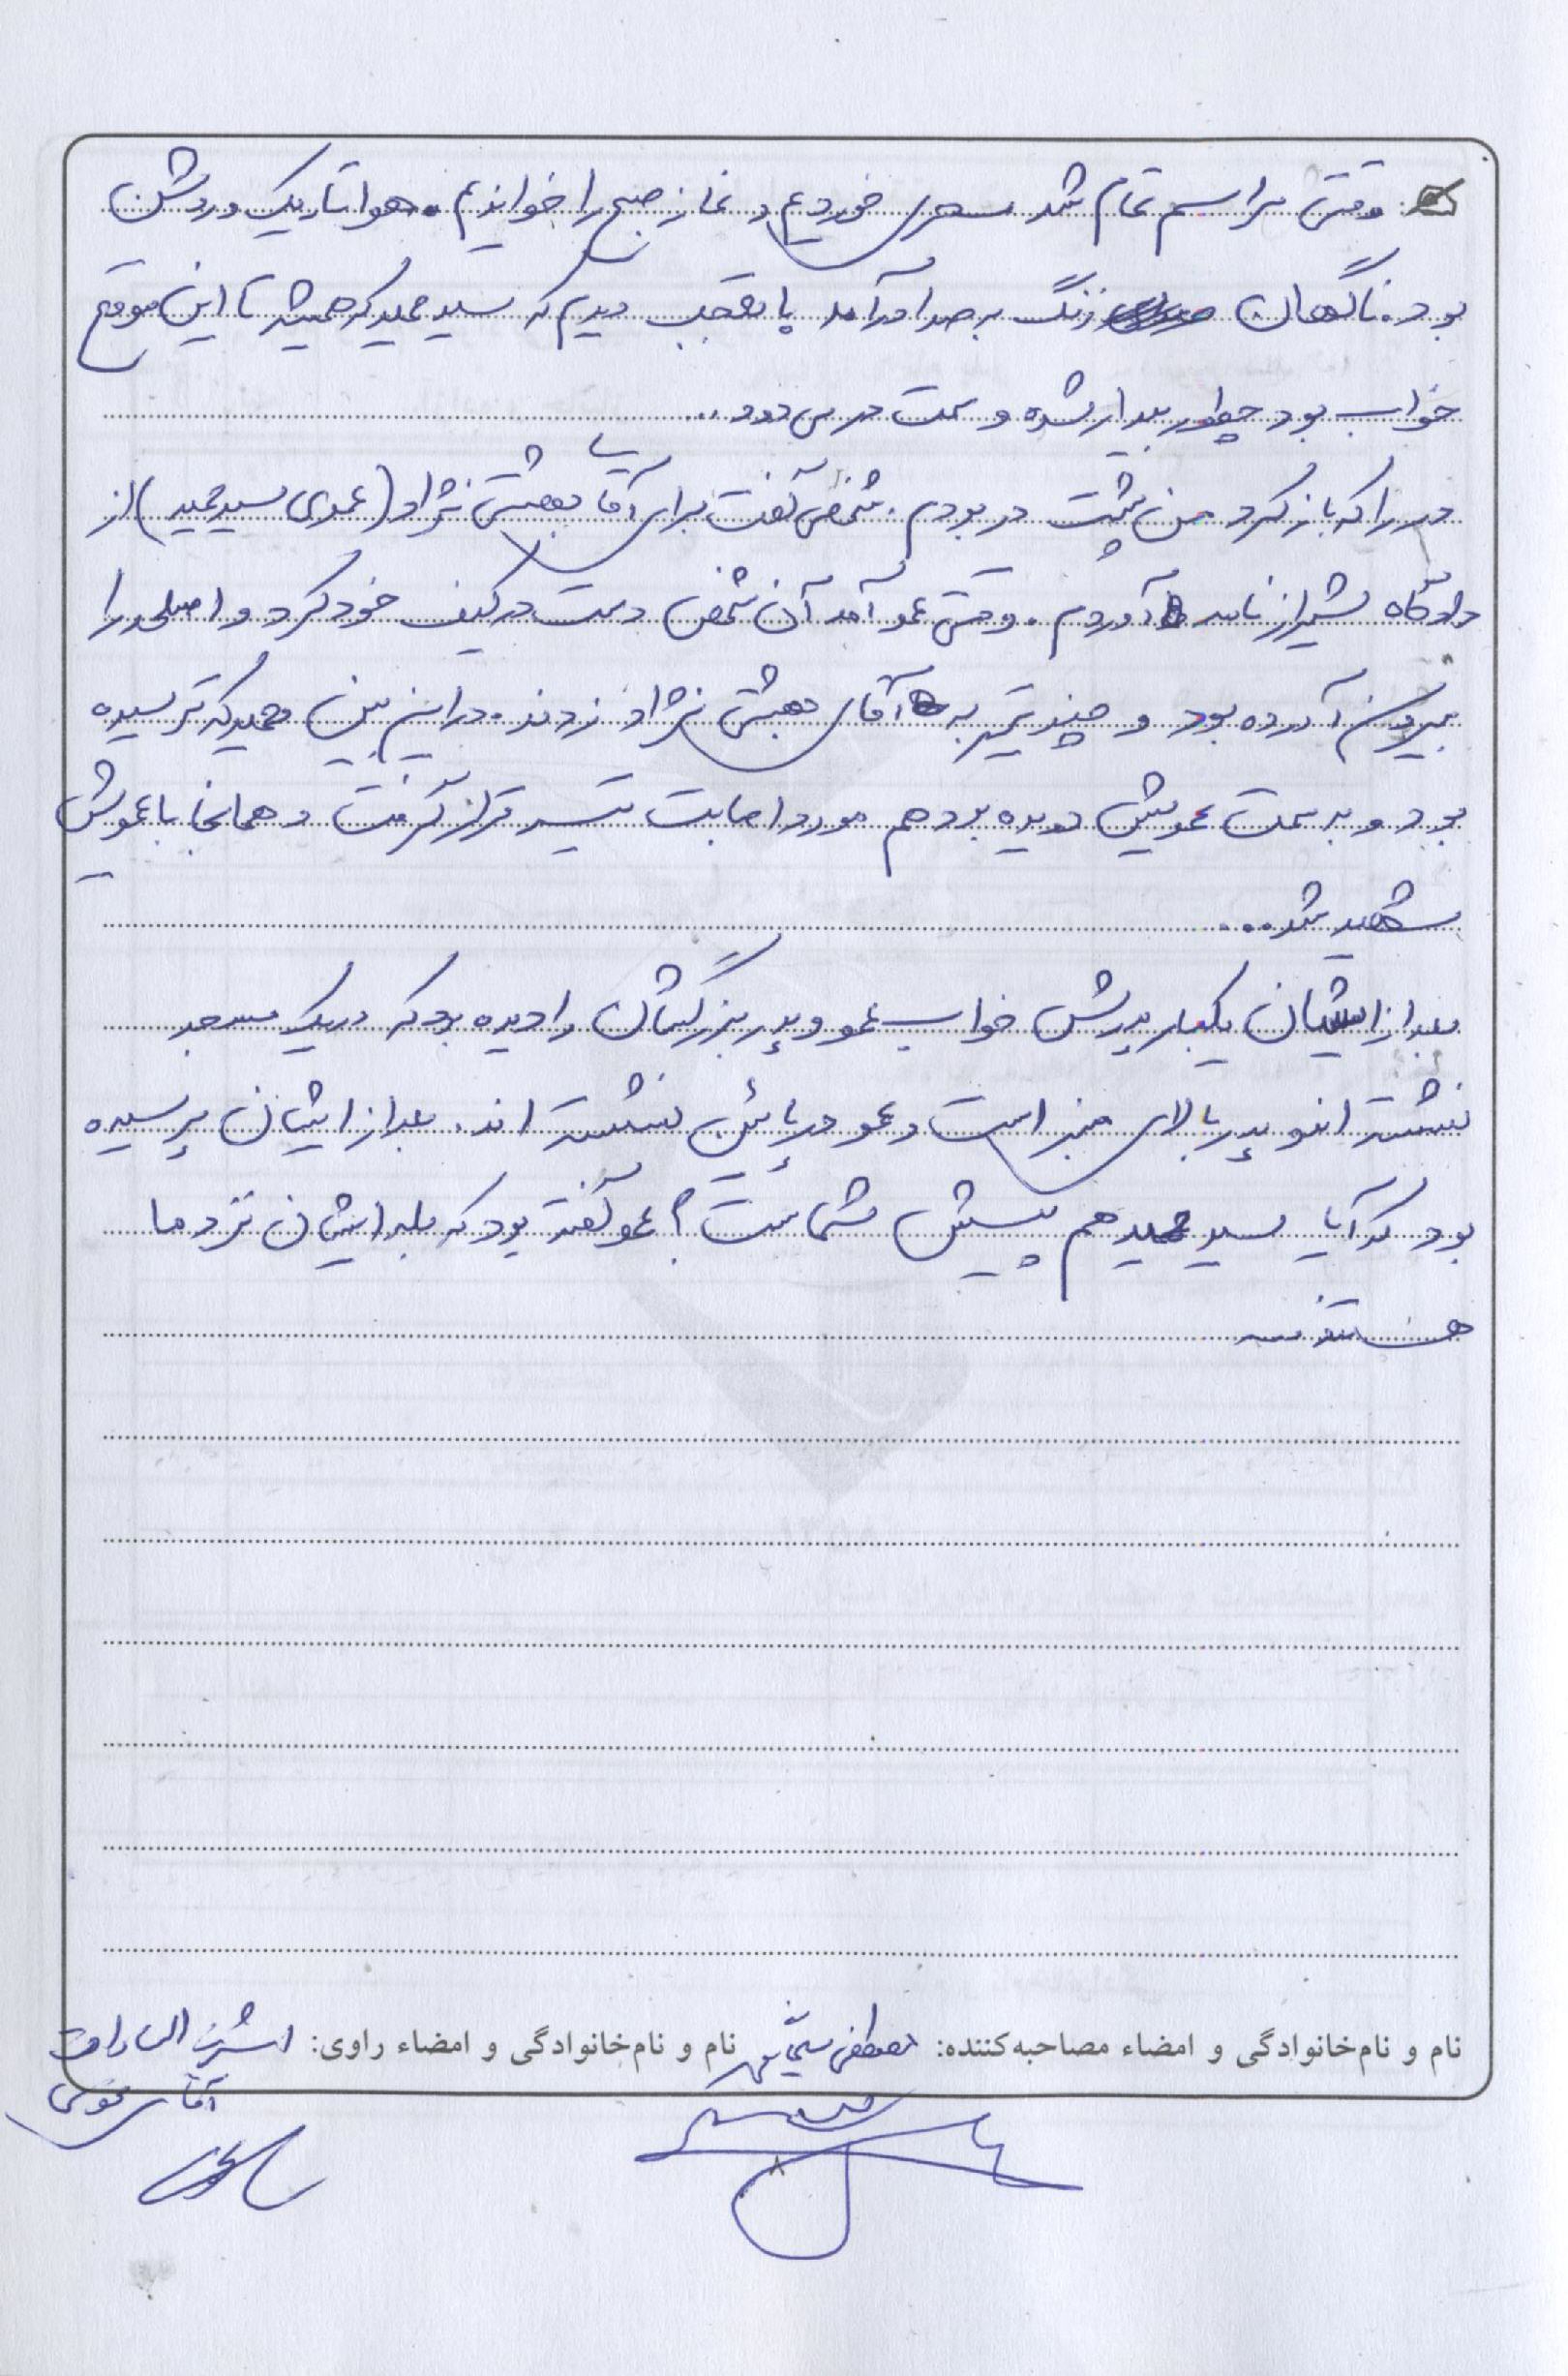 وقتی مراسم تمام شد سحری خوردیم و نماز صبح را خواندیم. هوا تاریک و روشن
بود. ناگهان زنگ به صدا درآمد با تعجب دیدم که سید حمید که همیشه تا این موقع
خواب بود چطور بیدار شده و سمت در می دود...
در را که باز کرد من پشت در بودم. شخصی گفت برای آقای بهشتی نژاد (عموی سید حمید) از
دادگاه شیراز نامه آوردم. وقتی عمو آمد آن شخص دست در کیف خود کرد و اسلحه را
بیرون آورده بود و چند تیر به آقای بهشتی نژاد زدند. در این بین حمید که ترسیده
بود و به سمت عمویش دویده بود هم مورد اصابت تیر قرار گرفت و همانجا با عمویش
شهید شد...
بعد از ایشان یکبار پدرش خواب عمو و پدر بزرگشان را دیده بود که در یک مسجد
نشسته اند و پدر بالای منبر است و عمو در پائین نشسته اند. بعد از ایشان پرسیده
بود که آیا سید حمید هم پیش شماست؟ عمو گفته بود که بله ایشان نزد ما
هستند
نام و نام‌خانوادگی و امضاء مصاحبه‌کننده: مصطفی نام و نام‌خانوادگی و امضاء راوی: اشرف السادات
آقای
۸